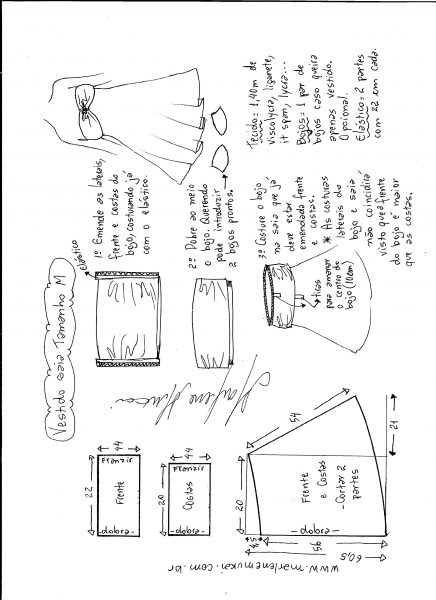 Vestido saia Tamanho M
Tecido: 1,40m de
viscolycra, liganete,
it span, lycra...
Bojos: 1 par de
bojos caso queira
apenas vestido.
Opcional.
Elástico: 2 partes
com 22 cm cada.
Elástico
1º Emende as laterais,
frente e costas do
bojo, costurando já
com o elástico.
2º Dobre ao meio
o bojo. Querendo
pode introduzir
2 bojos prontos.
3º Costure o bojo
na saia que já
deve estar
emendada frente
e costas.
* As costuras
laterais do
bojo e saia
não coincidirá
visto que a frente
do bojo é maior
que as costas.
tiras
para amarrar
o centro do
bojo (10cm
44
Franzir
22
Frente
-dobra-
44
Franzir
20
Costas
-dobra-
54
20
21
Frente
e Costas
-Cortar 2
partes
-dobra-
56
60,5
www.marlenemukai.com.br